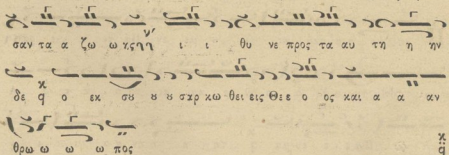 σαν τα α ζω ω ης ι ι θυ νε προς τα αυ τη η ην
δε ο εκ σου ου ου σαρ κω θει εις Θε ε ο ος και α α αν
θρω ω ω ω πος